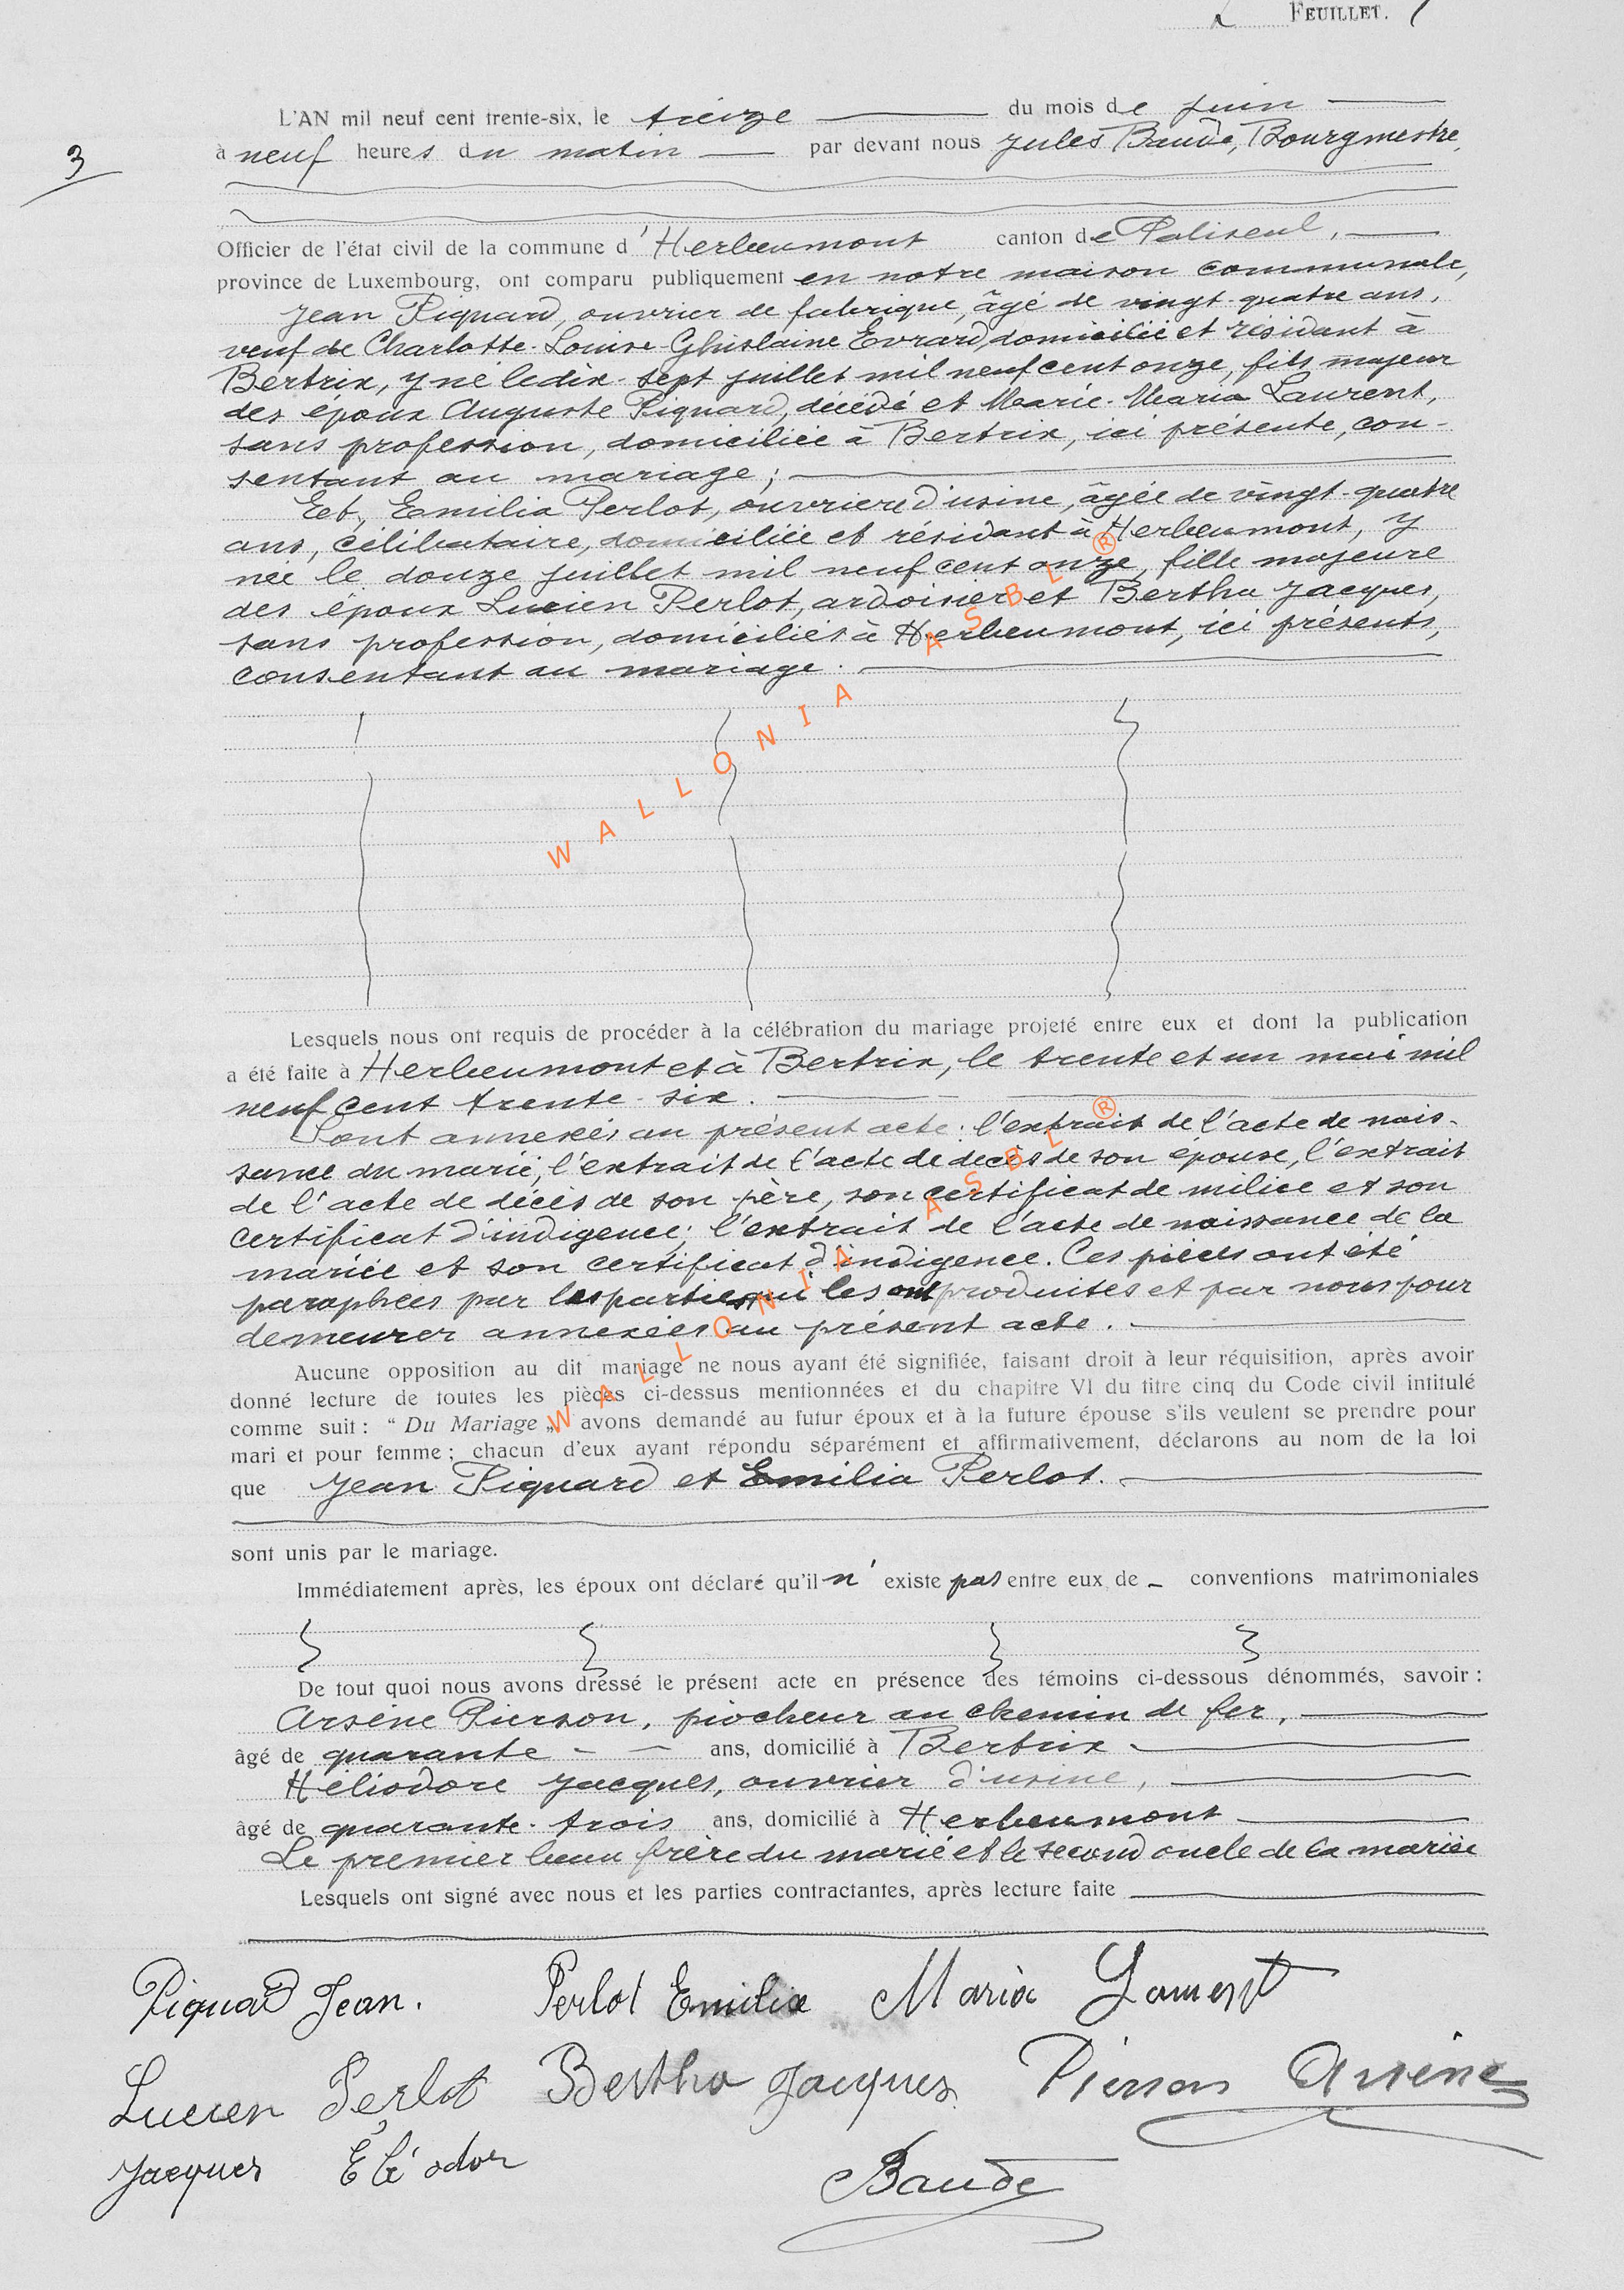 2 FEUILLET.
L'AN mil neuf cent trente-six, le treize du mois de juin
3
à neuf heures du matin par devant nous Jules Baude, Bourgmestre,
Officier de l'état civil de la commune d'Herbeumont canton de Paliseul,
province de Luxembourg, ont comparu publiquement en notre maison communale,
Jean Piquard, ouvrier de fabrique, âgé de vingt-quatre ans,
veuf de Charlotte-Louise-Ghislaine Evrard, domicilié et résidant à
Bertrix, y né le dix-sept juillet mil neuf cent onze, fils majeur
des époux Auguste Piquard, décédé et Marie-Maria Laurent,
sans profession, domiciliée à Bertrix, ici présente, con-
sentant au mariage;
Et, Emilia Perlot, ouvrière d'usine, âgée de vingt-quatre
ans, célibataire, domiciliée et résidant à Herbeumont, y
née le douze juillet mil neuf cent onze, fille majeure
des époux Lucien Perlot, ardoisier et Bertha Jacques,
sans profession, domiciliés à Herbeumont, ici présents,
consentant au mariage.
WALLONIA ASBL ®
Lesquels nous ont requis de procéder à la célébration du mariage projeté entre eux et dont la publication
a été faite à Herbeumont et à Bertrix, le trente et un mai mil
neuf cent trente-six.
Sont annexés au présent acte: l'extrait de l'acte de nais-
sance du marié, l'extrait de l'acte de décès de son épouse, l'extrait
de l'acte de décès de son père, son certificat de milice et son
certificat d'indigence; l'extrait de l'acte de naissance de la
mariée et son certificat d'indigence. Ces pièces ont été
paraphées par les parties qui les ont produites et par nous pour
demeurer annexées au présent acte.
WALLONIA ASBL ®
Aucune opposition au dit mariage ne nous ayant été signifiée, faisant droit à leur réquisition, après avoir
donné lecture de toutes les pièces ci-dessus mentionnées et du chapitre VI du titre cinq du Code civil intitulé
comme suit : “ Du Mariage „ avons demandé au futur époux et à la future épouse s'ils veulent se prendre pour
mari et pour femme ; chacun d'eux ayant répondu séparément et affirmativement, déclarons au nom de la loi
que Jean Piquard et Emilia Perlot.
sont unis par le mariage.
Immédiatement après, les époux ont déclaré qu'il n'existe pas entre eux de - conventions matrimoniales
De tout quoi nous avons dressé le présent acte en présence des témoins ci-dessous dénommés, savoir :
Arsène Pierson, piocheur au chemin de fer,
âgé de quarante ans, domicilié à Bertrix
Héliodore Jacques, ouvrier d'usine,
âgé de quarante-trois ans, domicilié à Herbeumont
Le premier beau frère du marié et le second oncle de la mariée
Lesquels ont signé avec nous et les parties contractantes, après lecture faite
Piquard Jean. Perlot Emilia Maria Laurent
Lucien Perlot Bertha Jacques Pierson Arsène
Jacques Eléodor Baude